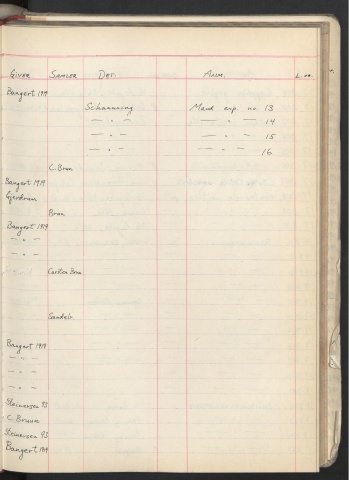 GIVER SAMLER Det. ANM. L. nr.
Bangert 1919
Schanning Maud exp. no. 13
— " — — " — 14
— " — — " — 15
— " — — " — 16
C. Brun
Bangert 1919
Gjerdrum
Brun
Bangert 1919
— " —
— " —
Carsten Brun
Bangert 1919
— " —
— " —
— " —
Steinersen 93
C. Bruun
Steinersen 93
Bangert 1919